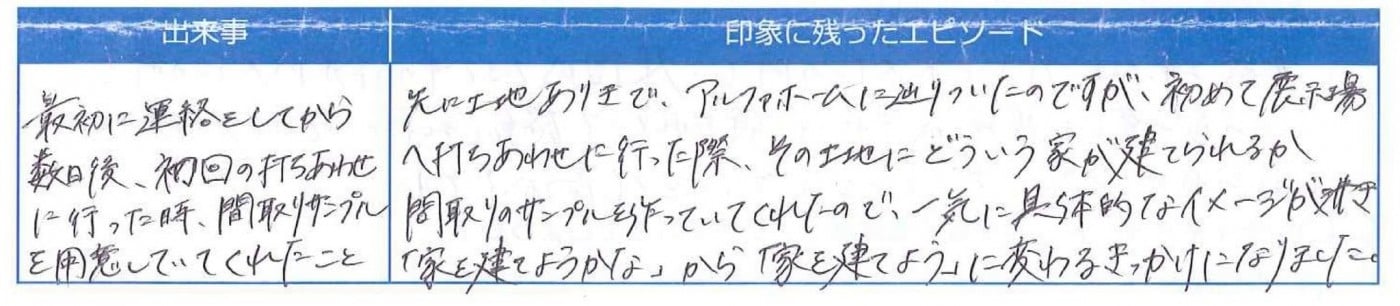 出来事
印象に残ったエピソード
最初に連絡をしてから
数日後、初回の打ちあわせ
に行った時、間取りサンプル
を用意していてくれたこと
先に土地ありきで、アルファホームに辿りついたのですが、初めて展示場
へ打ちあわせに行った際、その土地にどういう家が建てられるか
間取りのサンプルを作っていてくれたので、一気に具体的なイメージが沸き
「家を建てようかな」から「家を建てよう」に変わるきっかけになりました。